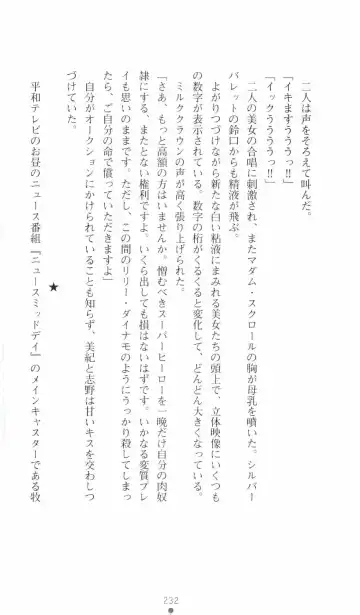 二人は声をそろえて叫んだ。
「イキますうううっ!!
「イックうううっ!!」
二人の美女の合唱に刺激され、またマダム・スクロールの胸が母乳を噴いた。シルバー
バレットの鈴口からも精液が飛ぶ。
よがりつづけながら新たな白い粘液にまみれる美女たちの頭上で、立体映像にいくつも
の数字が表示されている。数字の桁がくるくると変化して、どんどん大きくなっている。
ミルククラウンの声が高く張り上げられた。
「さあ、もっと高額の方はいませんか。憎むべきスーパーヒーローを一晩だけ自分の肉奴
隷にする、またとない権利ですよ。いくら出しても損はないはずです。いかなる変質プレ
イも思いのままです。ただし、この間のリリー・ダイナモのようにうっかり殺してしまっ
たら、ご自分の命で償っていただきますよ」
自分がオークションにかけられていることも知らず、美紀と志野は甘いキスを交わしつ
づけていた。
★
平和テレビのお昼のニュース番組『ニュースミッドデイ』のメインキャスターである牧
232